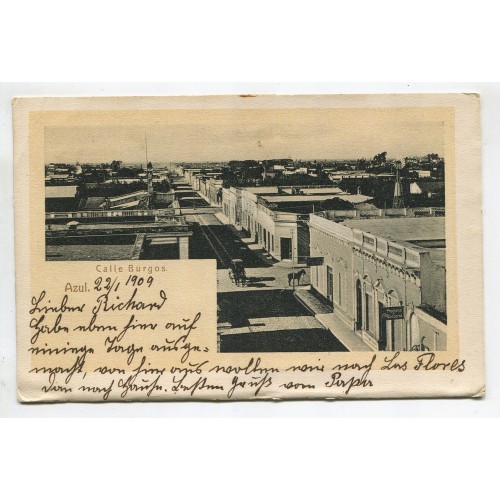 Calle Burgos.
Azul. 22/1 1909
Lieber Richard
Habe eben hier auf
einige Tage ausge-
macht, von hier aus wollen wir nach Las Flores
dan nach Hause. Besten Gruß vom Papa